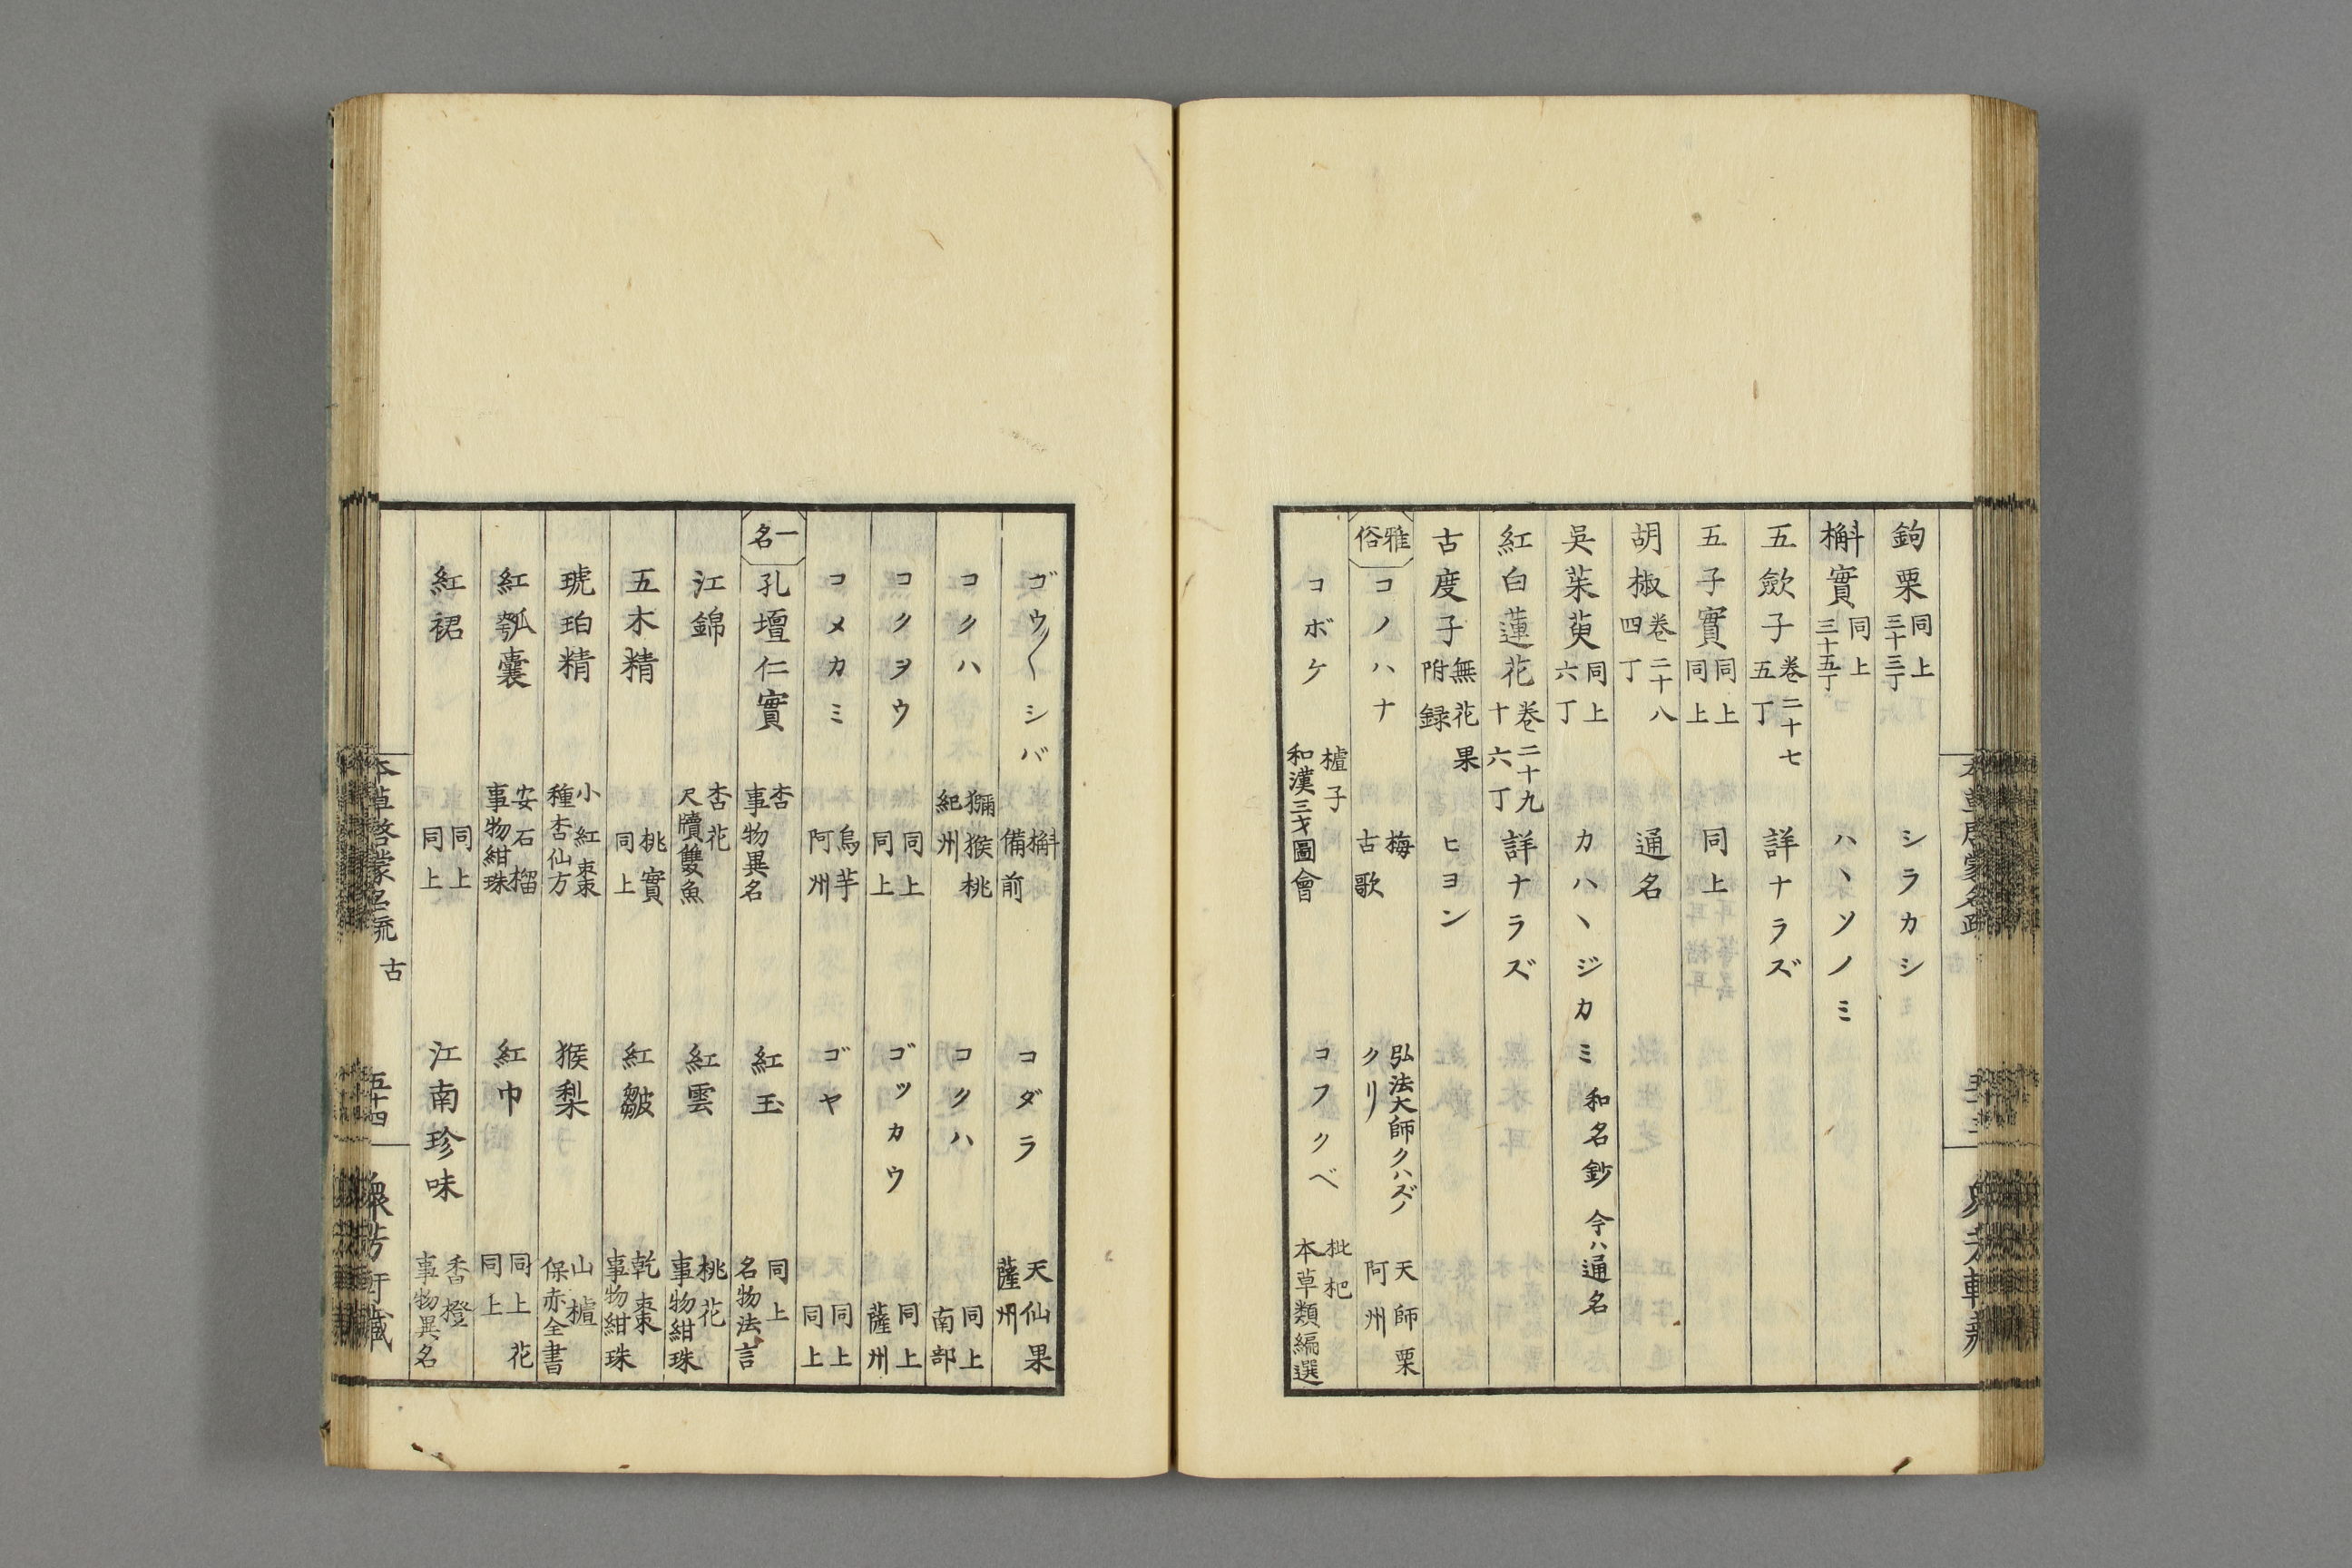 鉤栗 同上三十三丁 シラカシ
槲實 同上三十五丁 ハヽソノミ
五歛子 卷二十七五丁 詳ナラズ
五子實 同上同上 同上
胡椒 卷二十八四丁 通名
吳茱萸 同上六丁 カハヽジカミ 和名鈔 今ハ通名
紅白蓮花 卷二十九十六丁 詳ナラズ
古度子 無花果附録 ヒヨン
雅俗 コノハナ 梅古歌 弘法大師クハズノクリ 天師栗阿州
コボケ 樝子和漢三才圖會 コフクベ 枇杷本草類編選
ゴウ〳〵シバ 槲備前 コダラ 天仙果薩州
コクハ 獼猴桃紀州 コクハ 同上南部
コクヲウ 同上同上 ゴツカウ 同上薩州
コメカミ 烏芋阿州 ゴヤ 同上同上
一名 孔壇仁實 杏事物異名 紅玉 同上名物法言
江錦 杏花尺牘雙魚 紅雲 桃花事物紺珠
五木精 桃實同上 紅皺 乾棗事物紺珠
琥珀精 小紅棗種杏仙方 猴梨 山樝保赤全書
紅瓠囊 安石榴事物紺珠 紅巾 同上花同上
紅裙 同上同上 江南珍味 香橙事物異名
本草啓蒙名疏 古 五十四 衆芳軒藏